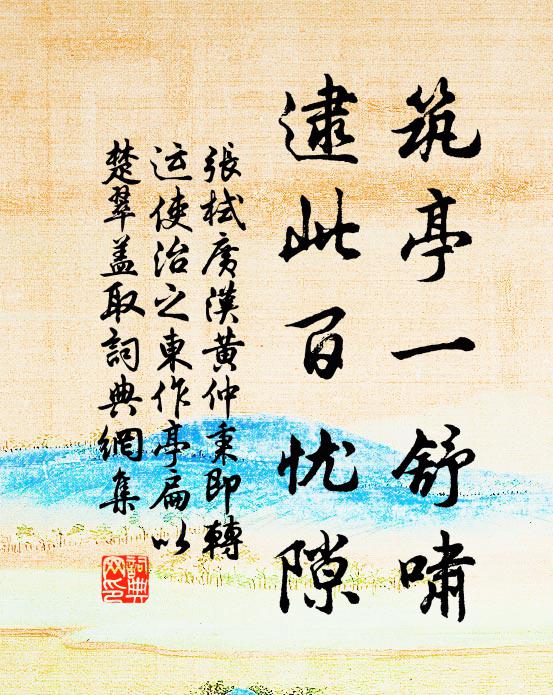 筑亭一舒啸
逮此百忧隙
張栻廣漢黄仲秉即轉
运使治之東作亭扁以
楚翠盖取詞典網集
詞典网印